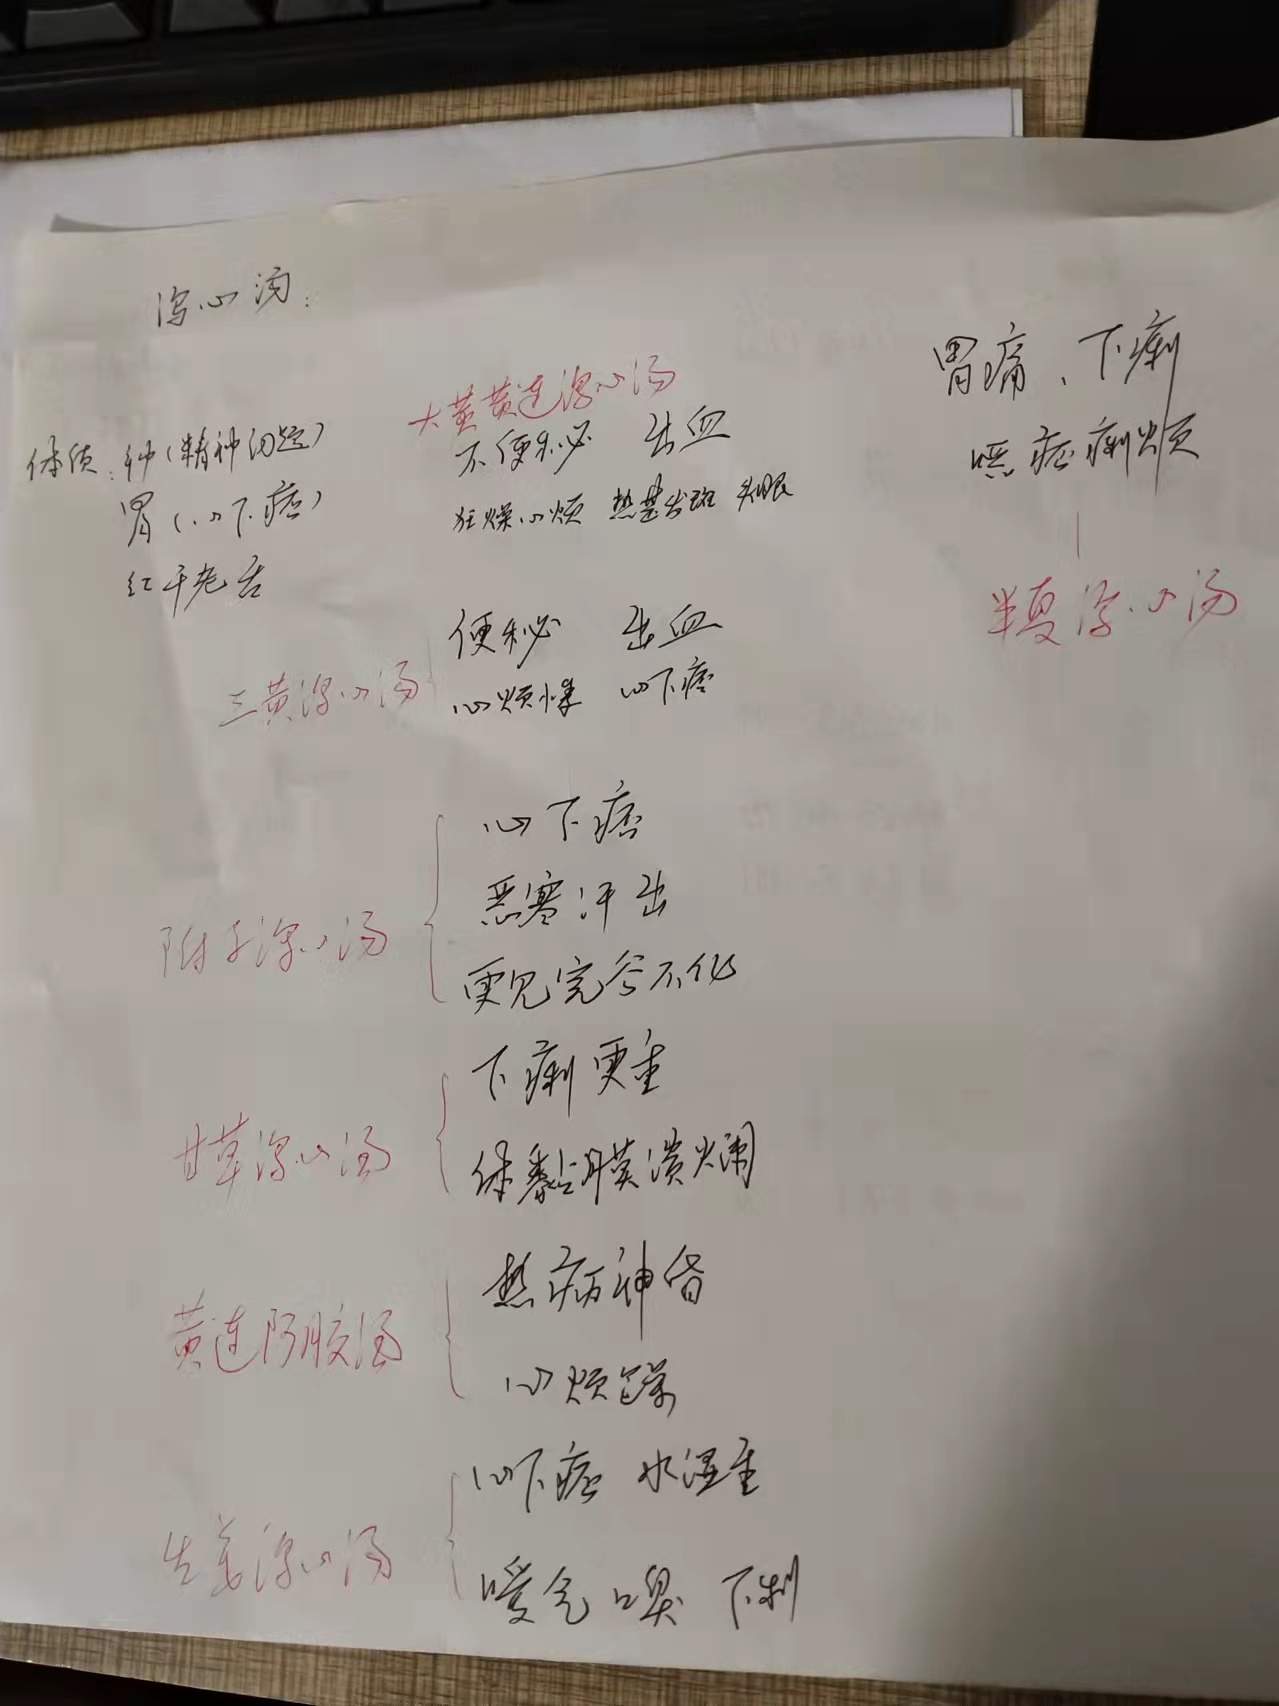 泻心汤：
体质：神（精神问题）
胃（心下痞）
红干老舌
大黄黄连泻心汤
不便秘 出血
狂燥心烦 热甚发斑 头眼
胃痛、下痢
呕痞痢烦
半夏泻心汤
三黄泻心汤
便秘 出血
心烦悸 心下痞
附子泻心汤
心下痞
恶寒汗出
更见完谷不化
甘草泻心汤
下痢更重
体黏膜溃烂
黄连阿胶汤
热病神昏
心烦躁
生姜泻心汤
心下痞 水湿重
嗳气口臭 下利